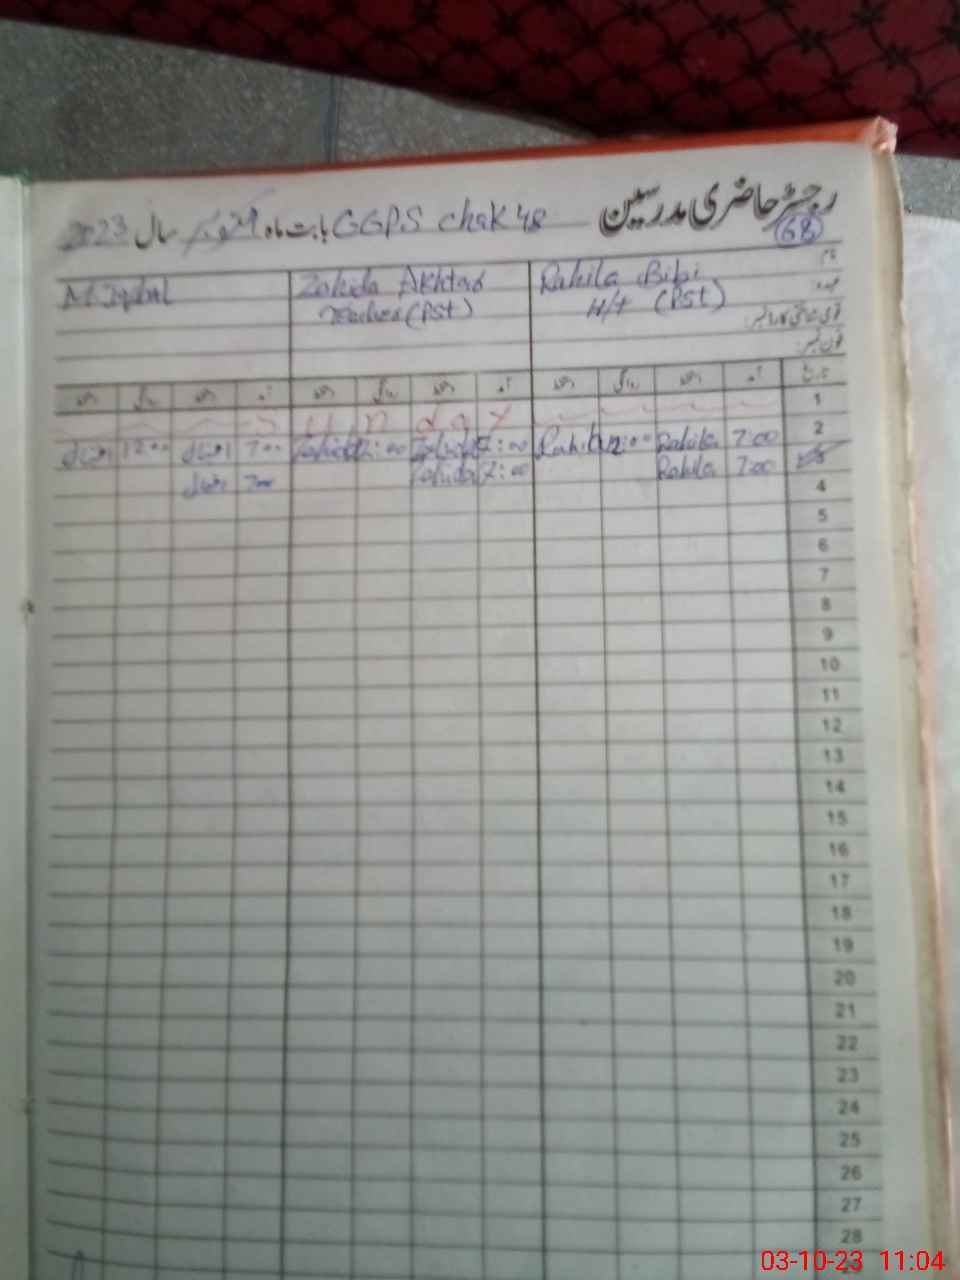 رجسٹر حاضری مدرسین GGPS Chak 48 بابت ماہ اکتوبر سال 2023
68
نام
Rahila Bibi Zahida Akhtar M. Iqbal
عہدہ
H/t (PSt) Teacher (PSt)
قومی شناختی کارڈ نمبر:
فون نمبر:
تاریخ آمد دستخط روانگی دستخط آمد دستخط روانگی دستخط آمد دستخط روانگی دستخط
1 S u n d a y
2 7:00 Rahila 12:00 Rahila 7:00 Zahida 12:00 Zahida 700 اقبال 1200 اقبال
7:00 Rahila 7:00 Zahida 700 اقبال
4
5
6
7
8
9
10
11
12
13
14
15
16
17
18
19
20
21
22
23
24
25
26
27
28
03-10-23 11:04